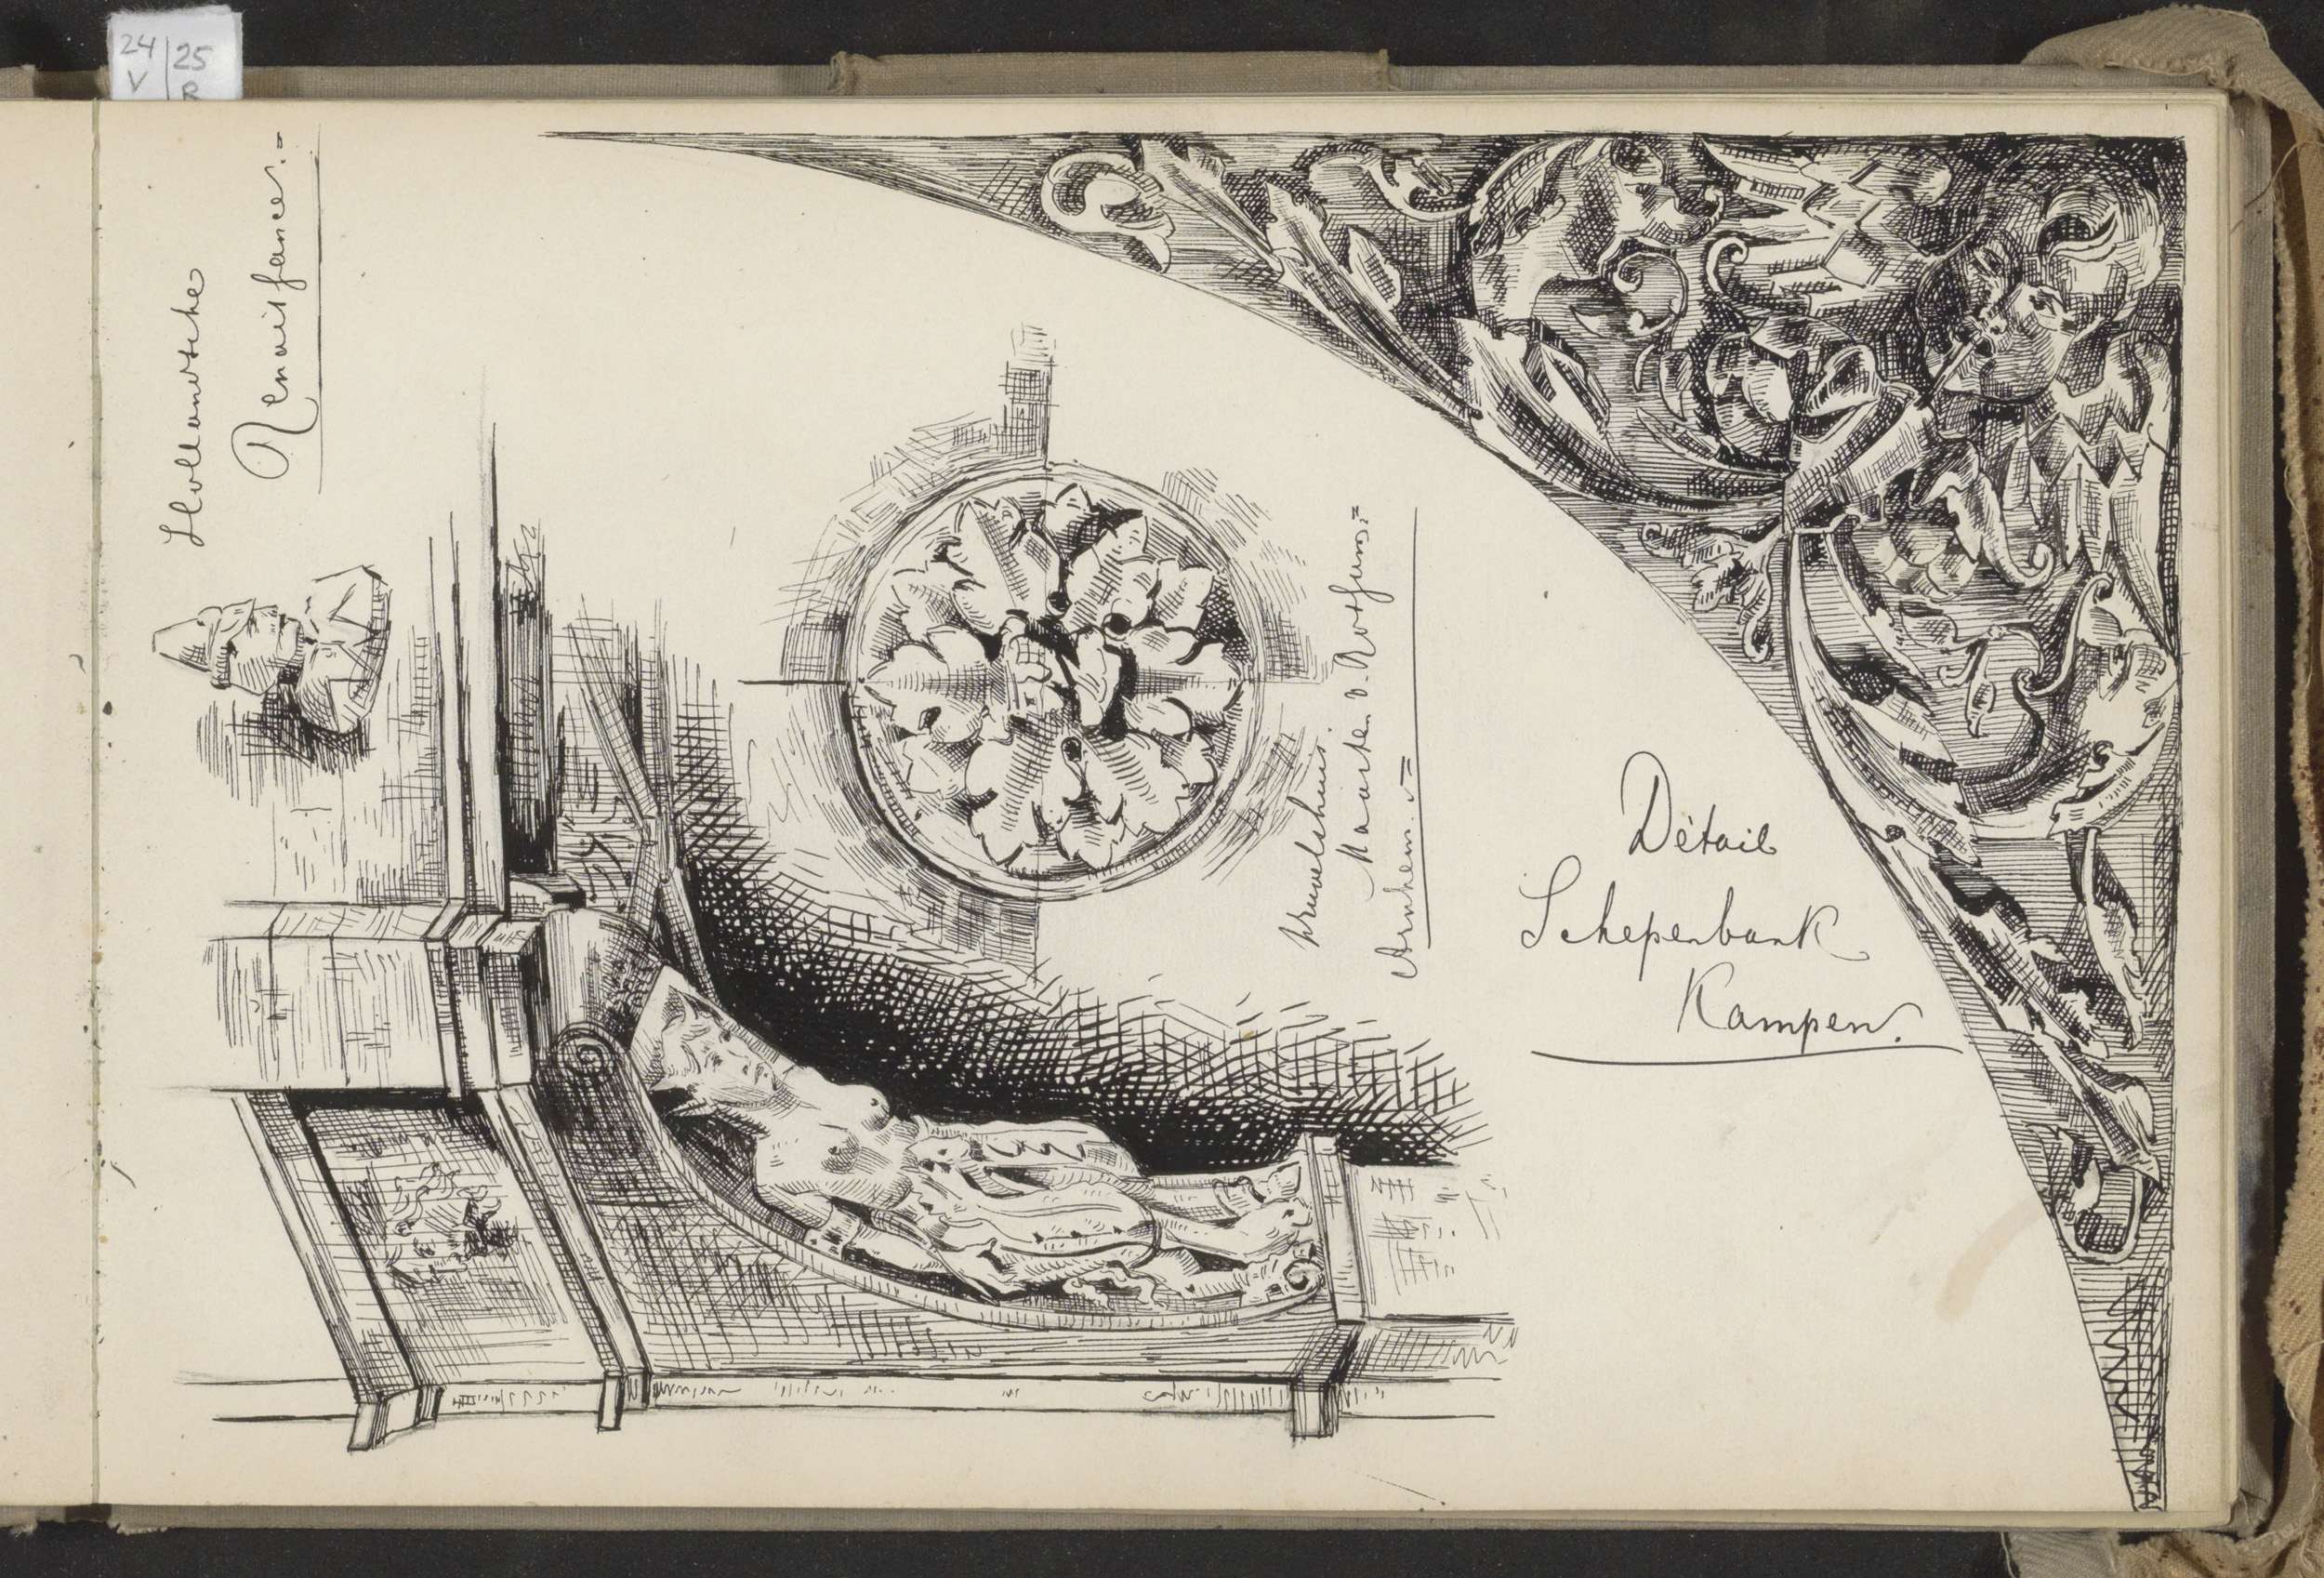 24 V | 25 R
Hollandsche
Renaissance.=
Duuvelshuis.
Maarten v. Rossum.=
Arnhem.=
Détail
Schepenbank
Kampen.